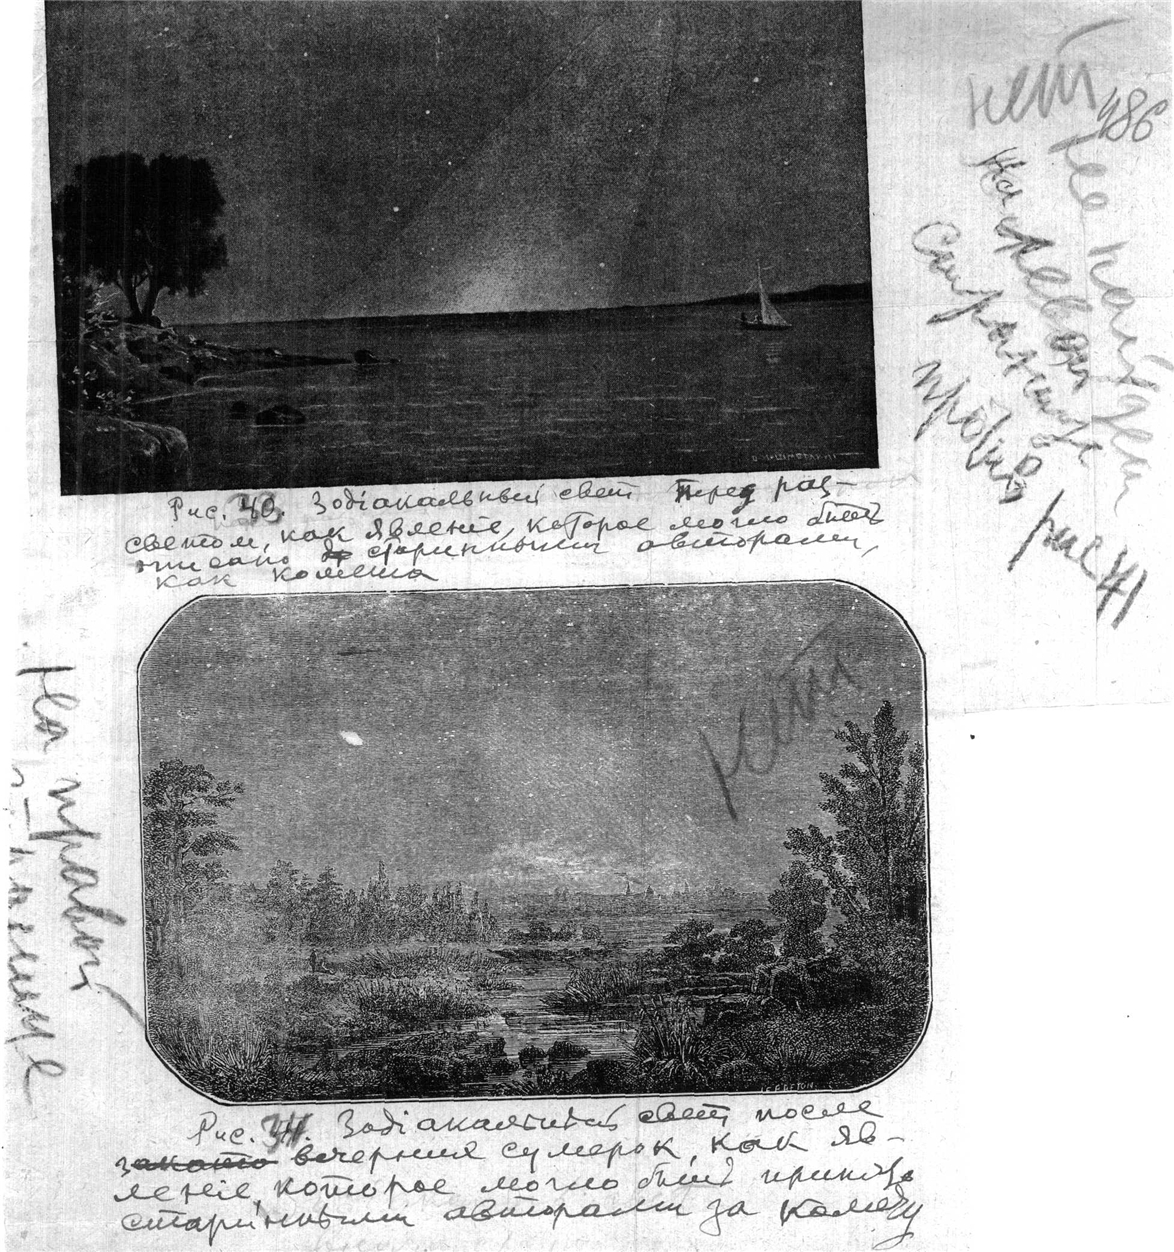 нет 486
не найден
На левой
странице
против рис 41
Рис. 40. Зодіакальный свет перед раз-
светом, как явленіе, которое могло быть
описано старинными авторами,
как комета
нет
На правой
странице
Рис. 41. Зодіакальный свет после
заката вечерния сумерок, как яв-
леніе, которое могло быть принято
старинными авторами за комету